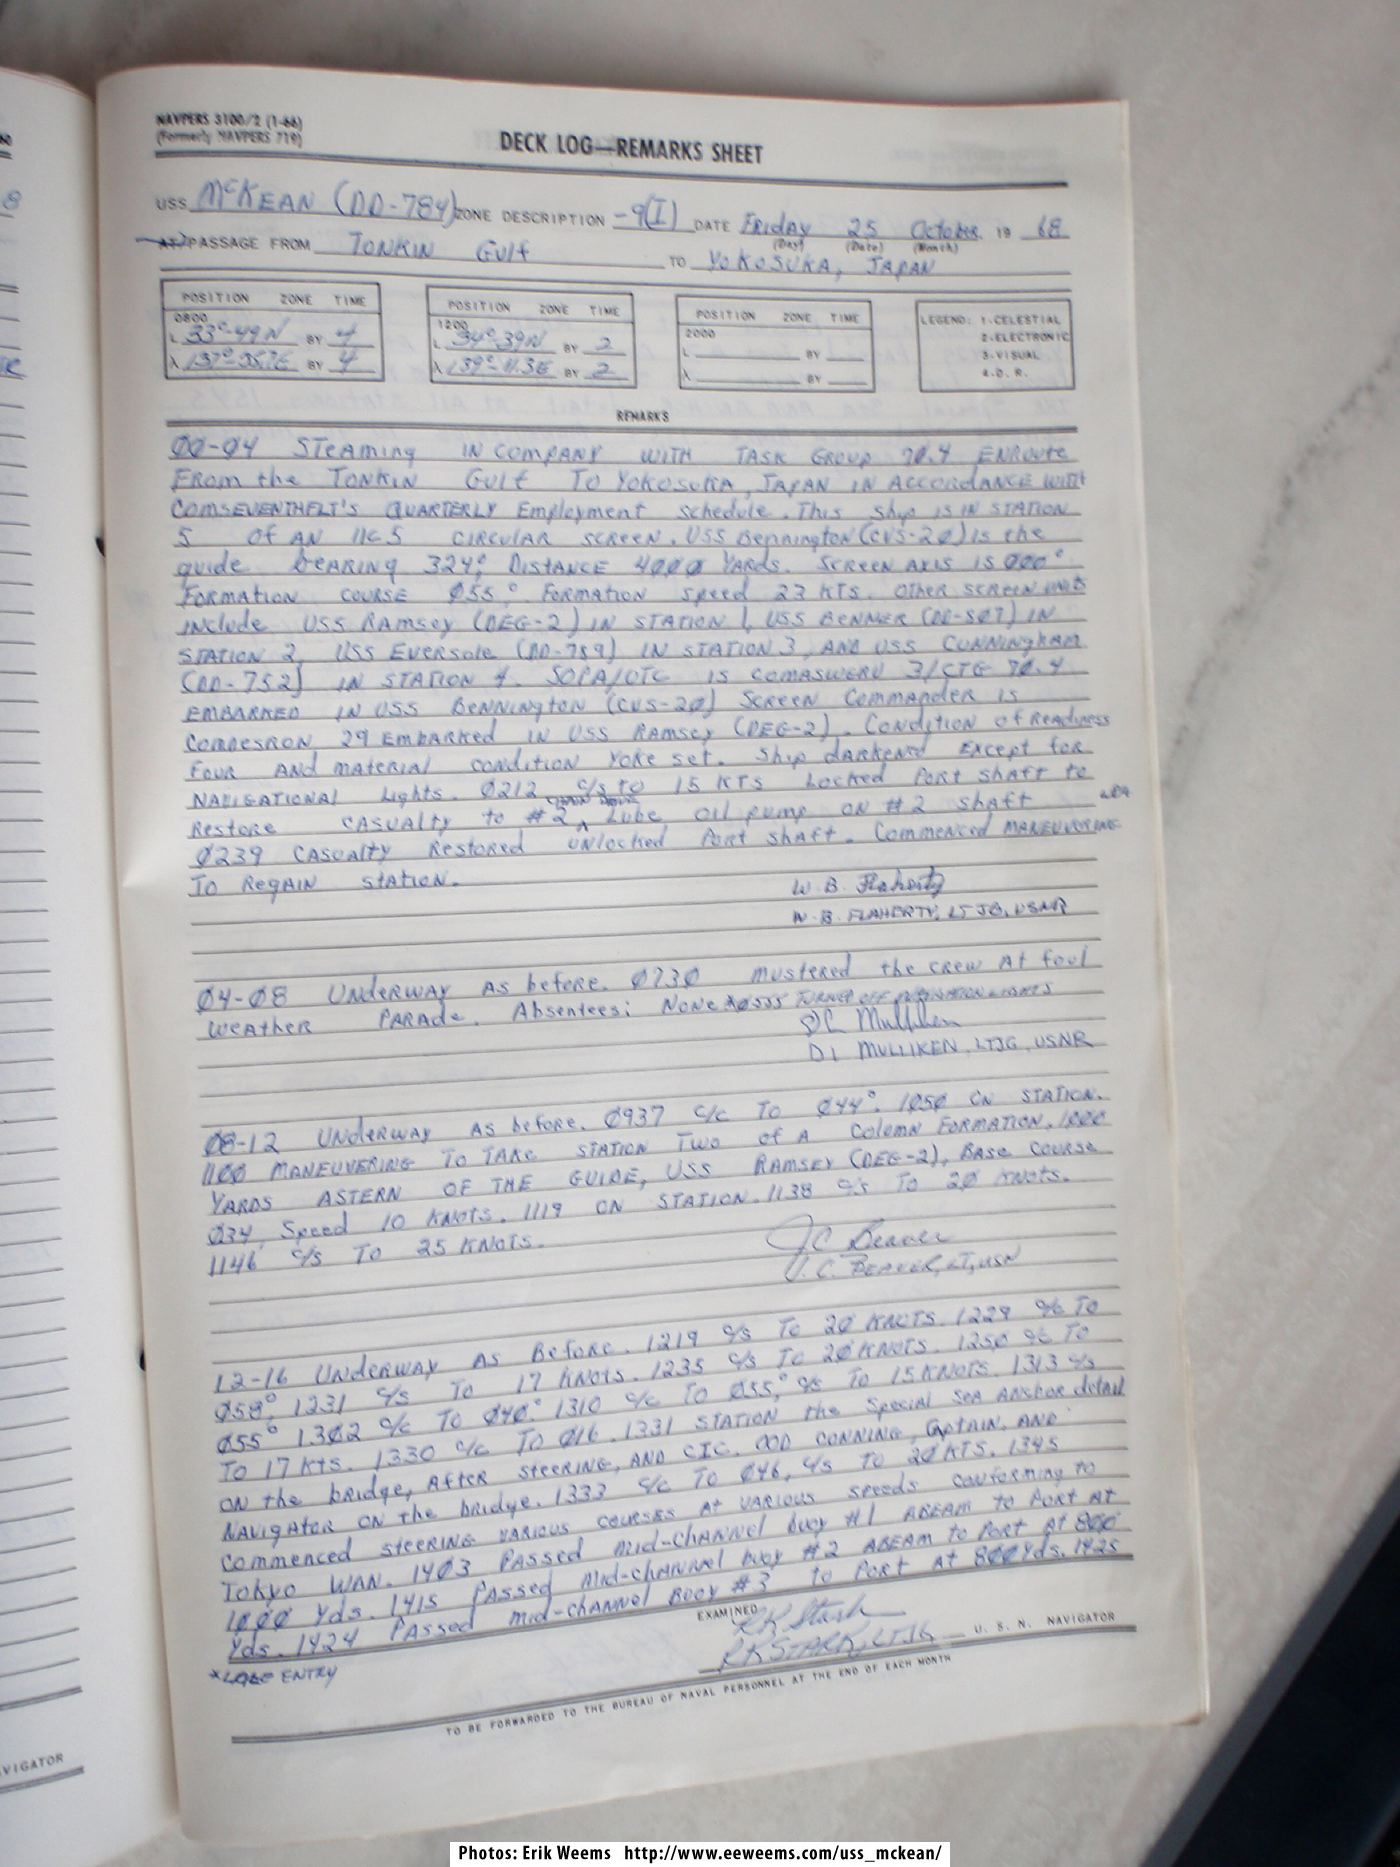 NAVPERS 3100/2 (1-66)
(Formerly NAVPERS 719)
DECK LOG—REMARKS SHEET
USS McKEAN (DD-784) ZONE DESCRIPTION -9(I) DATE Friday 25 October 19 68
(Day) (Date) (Month)
AT/PASSAGE FROM TONKIN Gulf TO YOKOSUKA, JAPAN
POSITION ZONE TIME
0800
L 33°-49N BY 4
λ BY 4
POSITION ZONE TIME
1200
L 34°-39N BY 2
λ 139°-11.3E BY 2
POSITION ZONE TIME
2000
L BY
λ BY
LEGEND: 1-CELESTIAL
2-ELECTRONIC
3-VISUAL
4-D.R.
REMARKS
00-04 STeaming IN COMPANY WITH TASK GROUP 70.4 ENROUTE
FROM the TONKIN Gulf TO YOKOSUKA, JAPAN IN ACCORDANCE WITH
COMSEVENTHFLT'S QUARTERLY Employment schedule. This ship IS IN STATION
5 OF AN 11C5 CIRCULAR SCREEN. USS Bennington (CVS-20) is the
guide bearing 324°, DISTANCE 4000 YARDS. SCREEN AXIS IS 000°
FORMATION COURSE 055°. FORMATION speed 23 KTS. OTHER SCREEN UNITS
include USS RAMSEY (DEG-2) IN STATION 1, USS BENNER (DD-807) IN
STATION 2, USS EVERSOLE (DD-789) IN STATION 3, AND USS CUNNINGHAM
(DD-752) IN STATION 4. SOPA/OTC IS COMASWGRU 3/CTG 70.4
EMBARKED IN USS BENNINGTON (CVS-20) SCREEN COMMANDER IS
COMDESRON 29 EMBARKED IN USS RAMSEY (DEG-2). CONDITION of READINESS
FOUR AND MATERIAL CONDITION YOKE set. Ship darkened EXCEPT for
NAVIGATIONAL lights. 0212 c/s to 15 KTS Locked Port shaft to
Restore CASUALTY to #2 Lube oil pump ON #2 shaft
0239 CASUALTY Restored UNlocked Port shaft. COMMENCED MANEUVERING
TO REGAIN STATION.
W. B. Flaherty
W. B. FLAHERTY, LTJG, USNR
04-08 UNDERWAY AS before. 0730 mustered the crew At foul
WEATHER PARADE. Absentees: NONE *0555 TURNED OFF NAVIGATION LIGHTS
DL Mulliken
DL MULLIKEN, LTJG, USNR
08-12 UNDERWAY AS before. 0937 c/c TO 044°. 1050 ON STATION.
1100 MANEUVERING TO TAKE STATION TWO of A COLUMN FORMATION, 1000
YARDS ASTERN OF THE GUIDE, USS RAMSEY (DEG-2), BASE COURSE
034, Speed 10 KNOTS. 1119 ON STATION. 1138 c/s TO 20 KNOTS.
1146 c/s TO 25 KNOTS.
JC Beaver
J. C. BEAVER, LT, USN
12-16 UNDERWAY AS BEFORE. 1219 c/s To 20 KNOTS. 1229 c/c TO
058°, 1231 c/s TO 17 KNOTS. 1235 c/s TO 20 KNOTS. 1250 c/c TO
055° 1302 c/c TO 040°. 1310 c/c TO 055°, c/s To 15 KNOTS. 1313 c/s
TO 17 KTS. 1330 c/c TO 016. 1331 STATION the Special SEA ANCHOR detail
ON the bridge, AFTER STEERING, AND CIC. OOD CONNING, CAPTAIN, AND
NAVIGATOR ON the bridge. 1333 c/c TO 046, c/s TO 20 KTS. 1345
Commenced steering VARIOUS COURSES At VARIOUS speeds conforming to
TOKYO WAN. 1403 PASSED Mid-CHANNEL buoy #1 ABEAM to PORT AT
1000 Yds. 1415 PASSED Mid-channel buoy #2 ABEAM to Port at 800
Yds. 1424 PASSED mid-CHANNEL BUOY #3 to PORT AT 800 Yds. 1425
EXAMINED
RK Stark
RK STARK, LTJG U. S. N. NAVIGATOR
*LATE ENTRY
TO BE FORWARDED TO THE BUREAU OF NAVAL PERSONNEL AT THE END OF EACH MONTH
AVIGATOR
Photos: Erik Weems http://www.eeweems.com/uss_mckean/